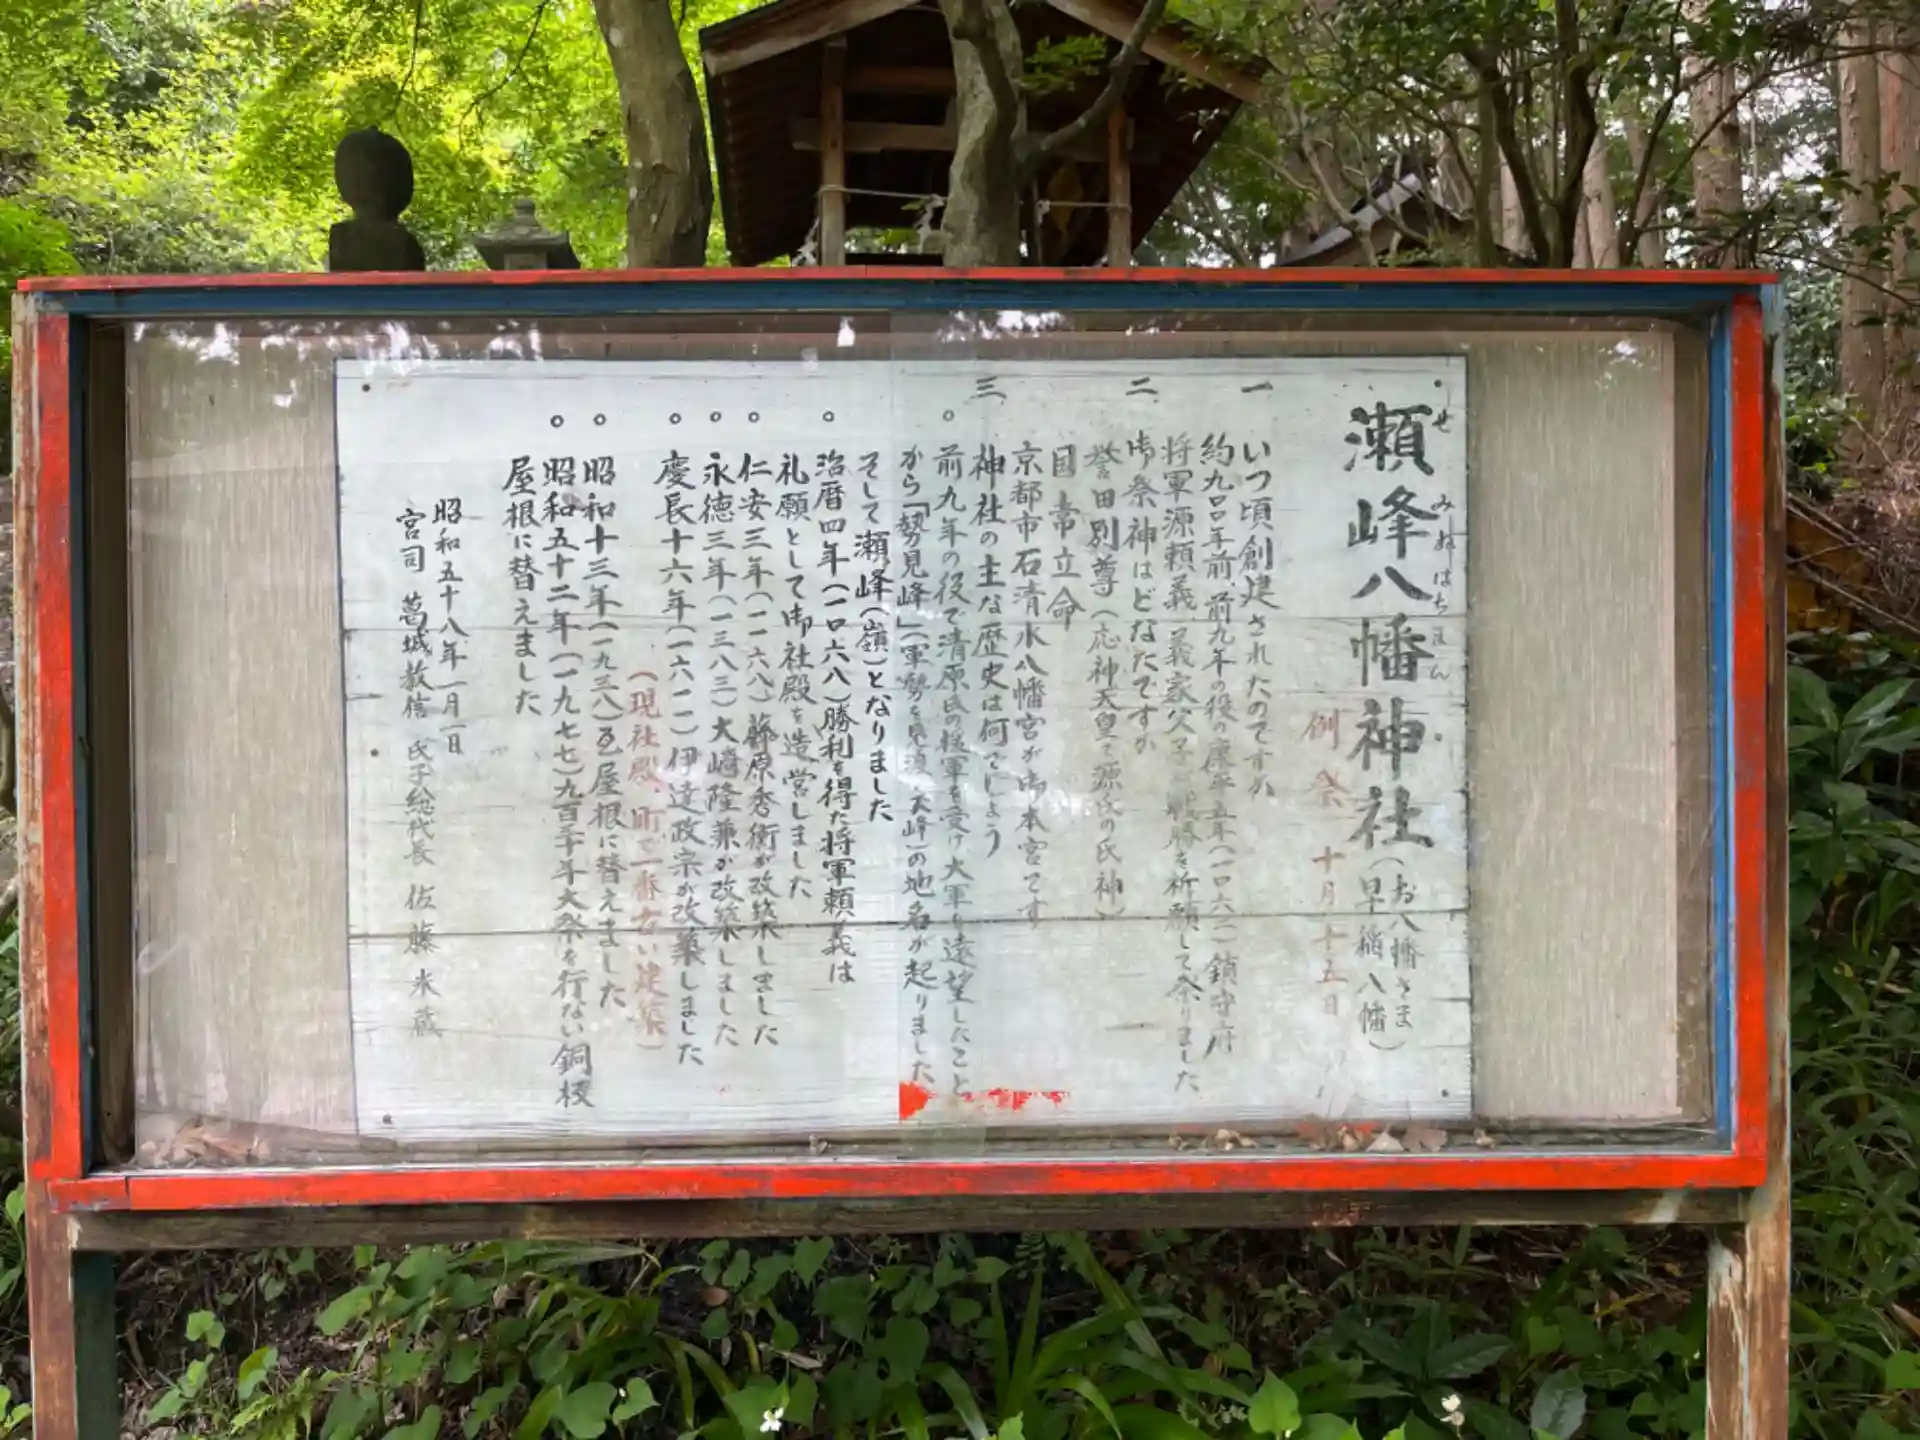 瀬峰八幡神社（お八幡さま）
（早稲八幡）
せみねはちまん
例祭 十月十五日
一 いつ頃創建されたのですか
約九〇〇年前、前九年の役の康平五年（一〇六二）鎮守府
将軍源頼義、義家父子が戦勝を祈願して祭りました
二 御祭神はどなたですか
誉田別尊（応神天皇で源氏の氏神）
国常立命
京都市石清水八幡宮が御本宮です
三 神社の主な歴史は何でしょう
○ 前九年の役で清原氏の援軍を受け、大軍を遠望したこと
から「勢見峰」（軍勢を見渡す峰）の地名が起りました
そして瀬峰（嶺）となりました
○ 治暦四年（一〇六八）勝利を得た将軍頼義は
礼願として御社殿を造営しました
○ 仁安三年（一一六八）藤原秀衡が改築しました
○ 永徳三年（一三八三）大崎隆兼が改築しました
○ 慶長十六年（一六一一）伊達政宗が改築しました
（現社殿、町で一番古い建築）
○ 昭和十三年（一九三八）瓦屋根に替えました
○ 昭和五十二年（一九七七）九百年大祭を行ない銅板
屋根に替えました
昭和五十八年一月一日
宮司 葛城教信 氏子総代長 佐藤米蔵